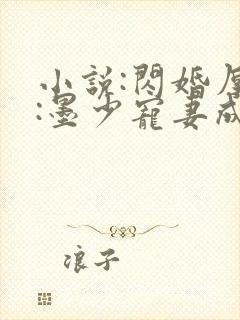 小說:閃婚厚
:墨少寵妻成
浪子